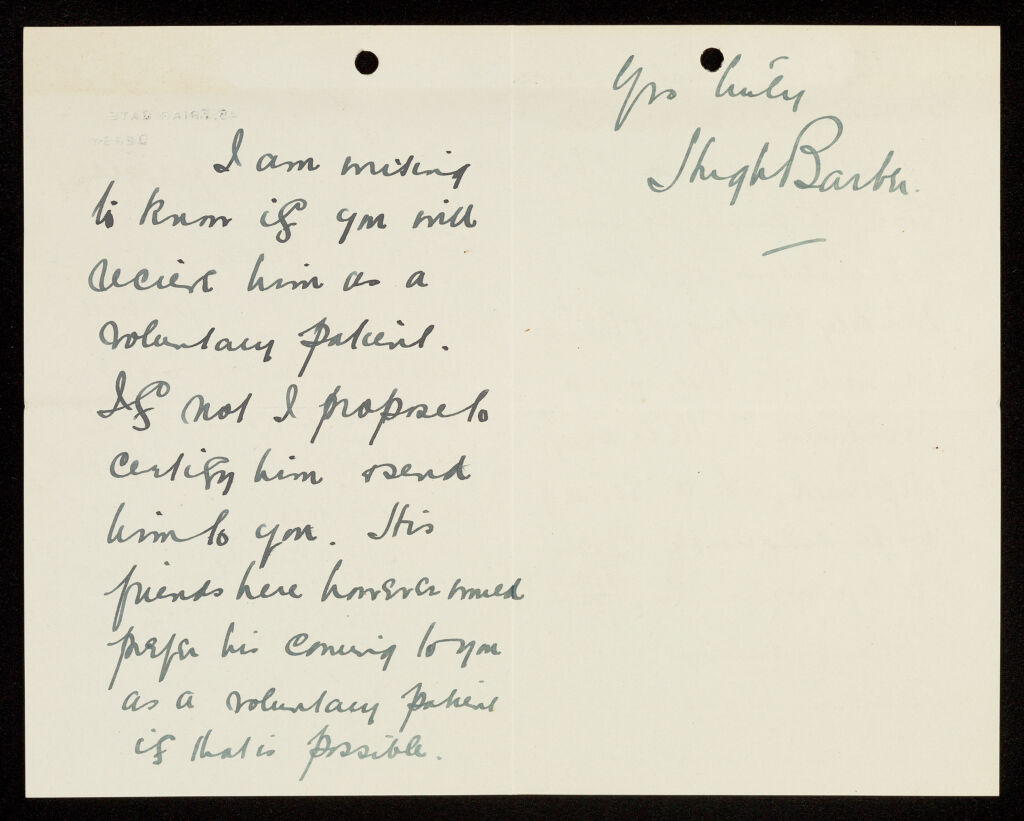 I am writing
to know if you will
recieve him as a
voluntary patient.
If not I propose to
certify him & send
him to you. His
friends here however would
prefer his coming to you
as a voluntary patient
if that is possible.
Yrs truly
Hugh Barber.